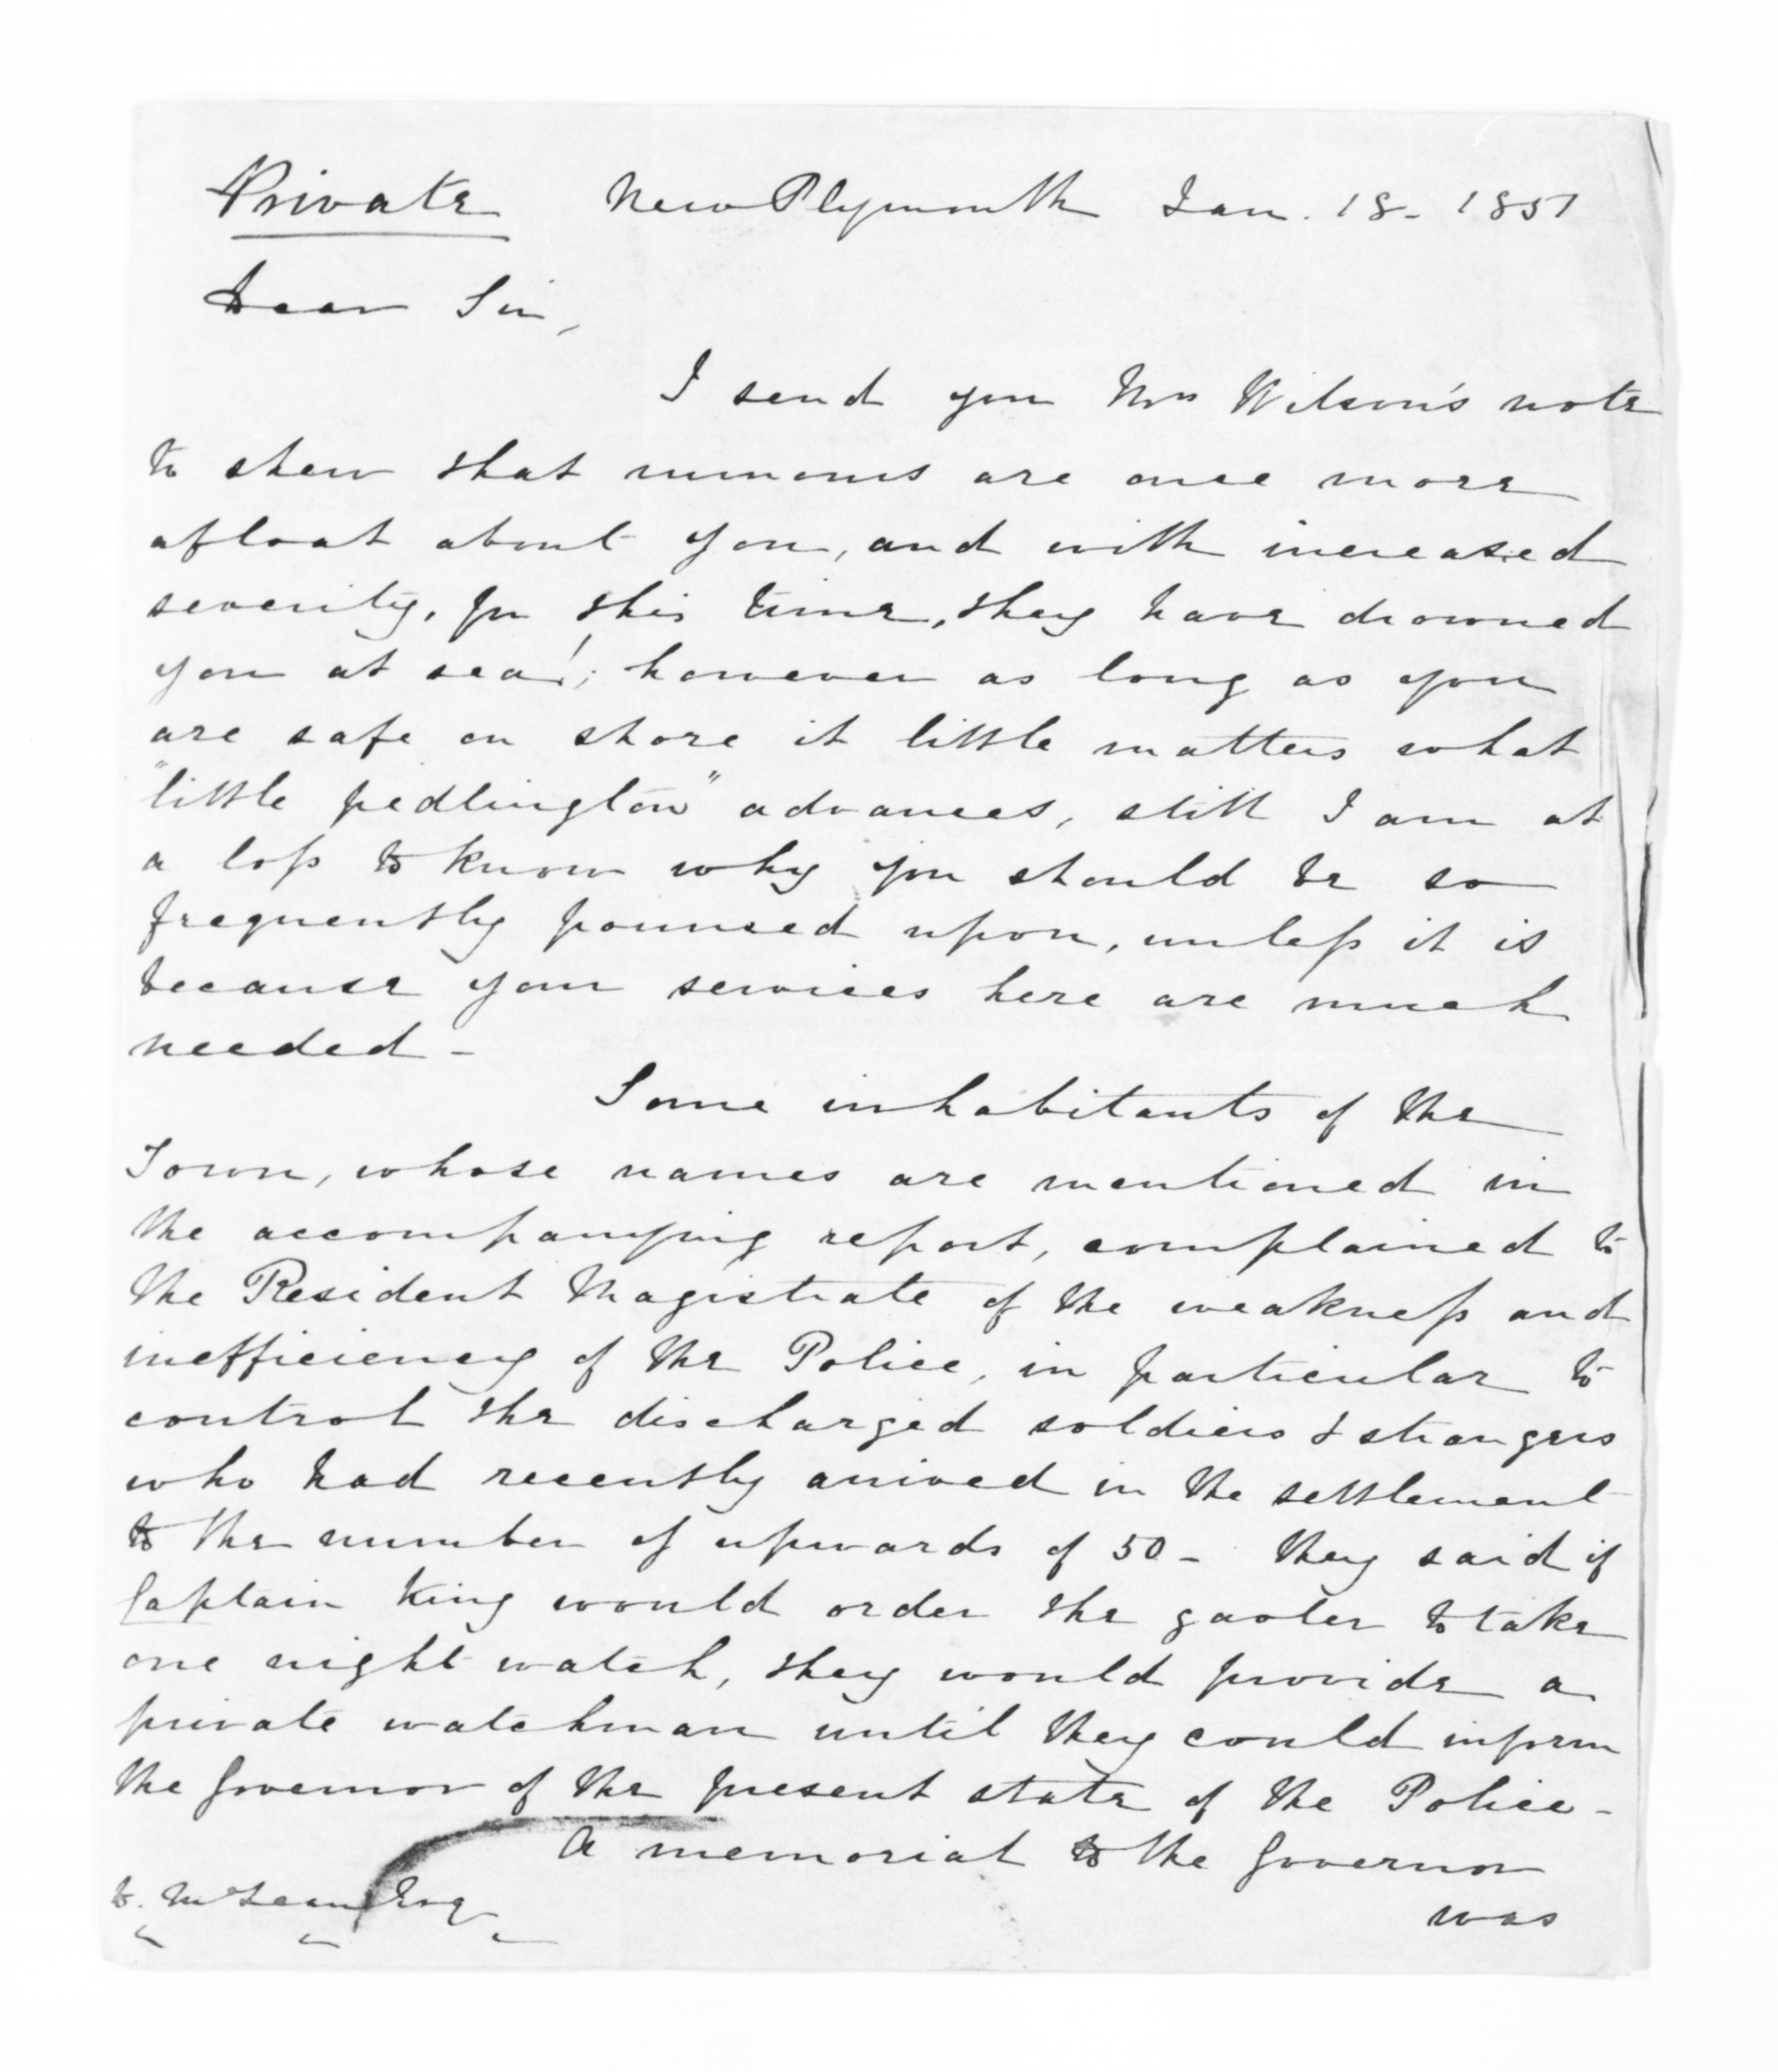 Private New Plymouth Jan. 18 - 1851
Dear Sir,
I send you Mrs Wilson's note
to shew that rumours are once more
afloat about you, and with increased
severity, for this time, they have drowned
you at sea!; however as long as you
are safe on shore it little matters what
"little pedlington" advances, still I am at
a loss to know why you should be so
frequently pounced upon, unless it is
because your services here are much
needed -
Some inhabitants of the
Town, whose names are mentioned in
the accompanying report, complained to
the Resident Magistrate of the weakness and
inefficiency of the Police, in particular to
control the discharged soldiers & strangers
who had recently arrived in the settlement
to the number of upwards of 50 - they said if
Captain King would order the gaoler to take
one night watch, they would provide a
private watchman until they could inform
the Governor of the present state of the Police -
A memorial to the Governor
was
D. McLean Esq